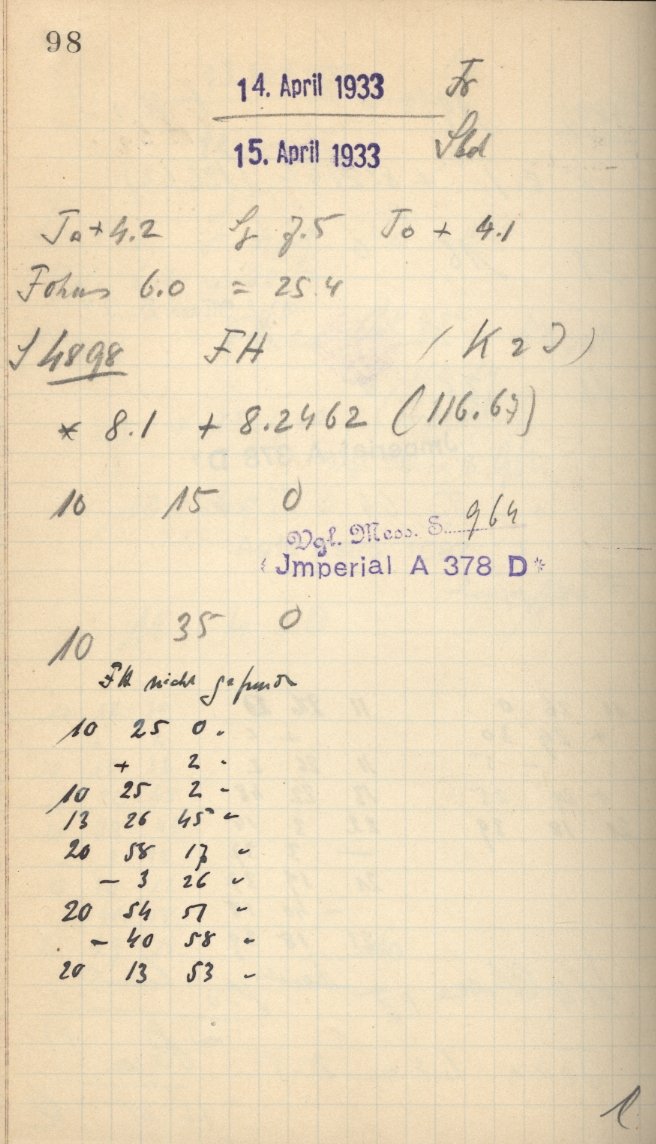 98
14. April 1933 Fr
15. April 1933
+4.2 7.5 + 4.1
Fokus 6.0 = 25.4
4898 FH (K 2 J)
* 8.1 + 8.2462 (116.67)
10 15 0
Vgl. Mess. S. 964
Jmperial A 378 D*
10 35 0
FH nicht gefunden
10 25 0
+ 2
10 25 2
13 26 45
20 58 17
- 3 26
20 54 51
- 40 58
20 13 53